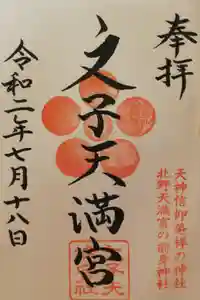 奉拝
天神信仰発祥の神社
北野天満宮の前身神社
文子天満宮
令和二年七月十八日